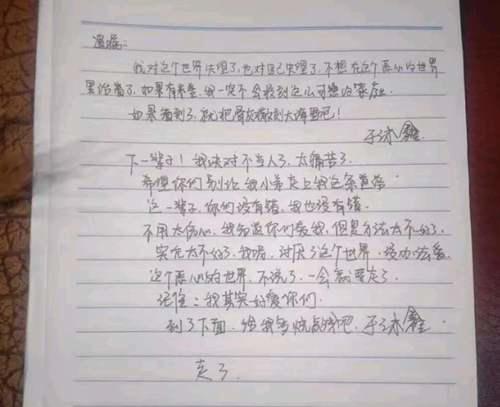 遗嘱:
我对这个世界失望了,也对自己失望了,不想在这个恶心的世界
里活着了,如果有来生,我一定不会投到这么可悲的家庭
如果看到了,就把骨灰撒到大海里吧!
下一辈子!我决对不当人了,太痛苦了.
希望你们别让我小弟走上我这条道路
这一辈子,你们没有错,我也没有错.
不用太伤心,我知道你们爱我,但是方法太不好了,
实在太不好了,我,讨厌了这个世界,
这个恶心的世界,不说了,一会就要走了.
记住:我其实好爱你们.
到了下面,给我多烧点钱吧.
走了.